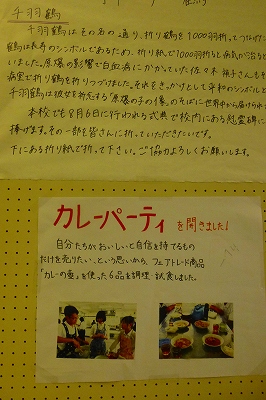 千羽鶴
千羽鶴はその名の通り、折り鶴を1000羽折ってつなげた
鶴は長寿のシンボルであるため、折り紙で1000羽折ると病気が治ると
いました。原爆の影響で白血病にかかっていた佐々木禎子さんも
病室で折り鶴を折りつづけました。それをきっかけとして平和のシンボルと
千羽鶴は彼女を対応する「原爆の子の像」のそばに世界中から届けられ
本校でも8月6日に行われる式典で校内にある慰霊碑に
捧げます。その一部を皆さんに折っていただきたいです。
下にある折り紙で折って下さい。ご協力よろしくお願いします。
カレーパーティを開きました!
自分たちがおいしいと自信を持てるもの
だけを売りたい、という思いから、フェアトレード商品
「カレーの壺」を使った6品を調理・試食しました。